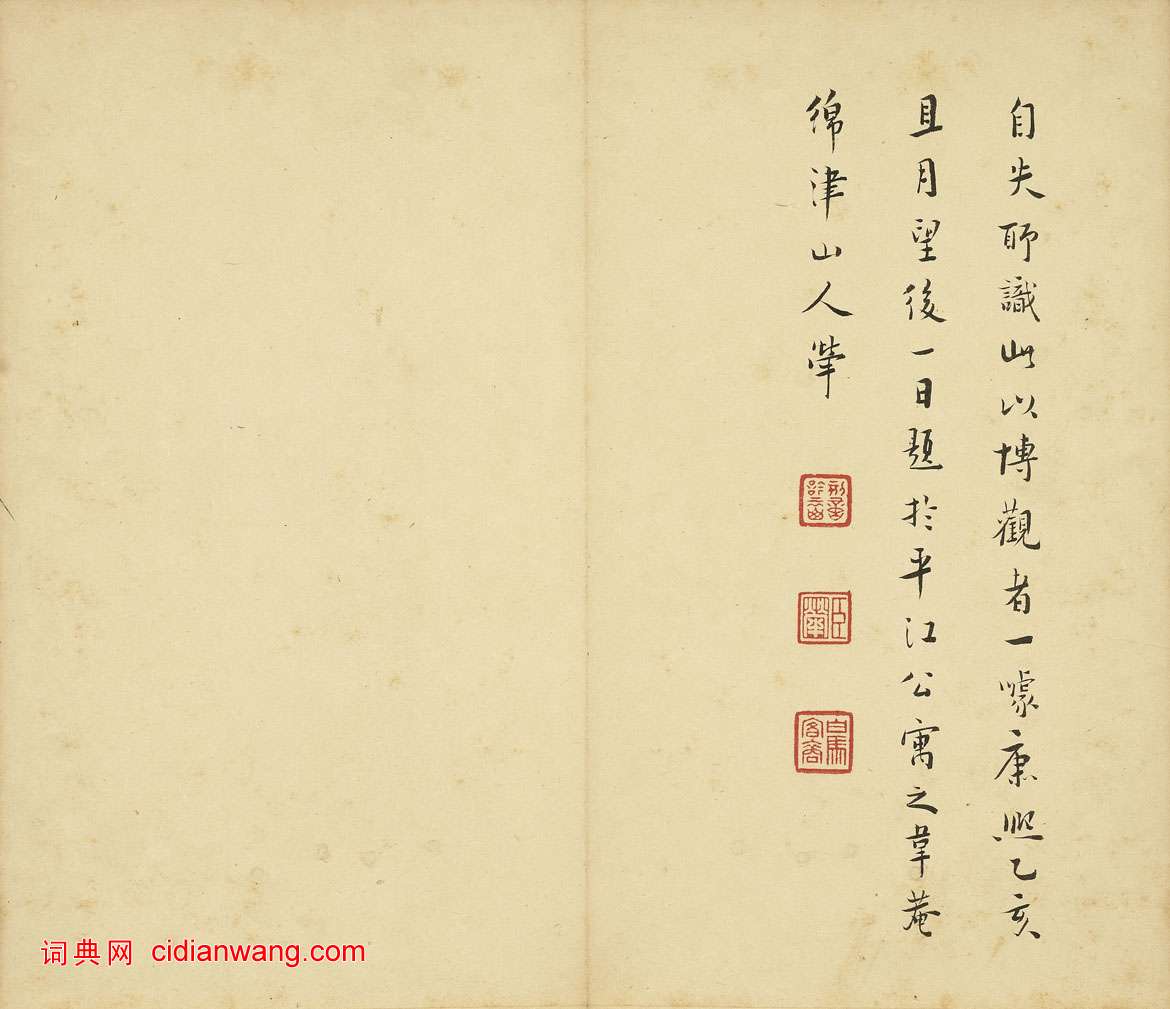 自失聊識此以博觀者一噱康熙乙亥
且月望後一日題於平江公寓之葦菴
綿津山人犖
臣犖
白馬客裔
词典网 cidianwang.com